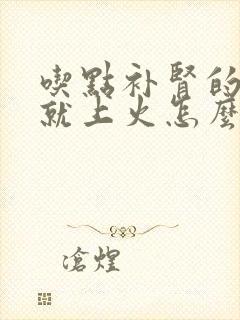 喫點补腎的
就上火怎麼
滄煌